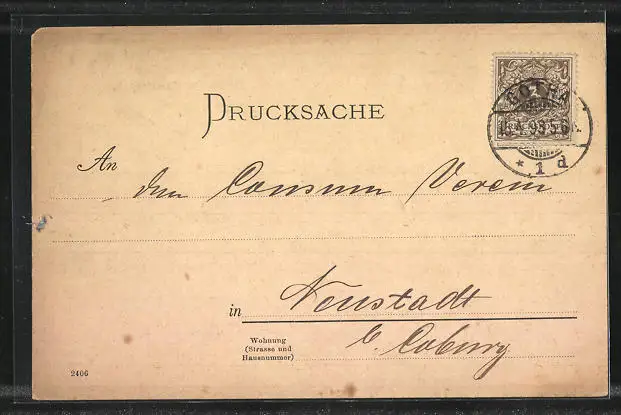 DRUCKSACHE
GOTHA
15.4.98.5-6
* 1 d
An den Consum Verein
in Neustadt
Wohnung
(Strasse und
Hausnummer)
b. Coburg
2406